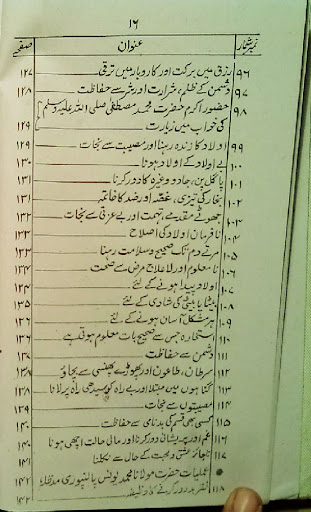 ۱۶
نمبر شمار عنوان صفحہ
۹۶ رزق میں برکت اور کاروبار میں ترقی ۱۲۷
۹۷ دشمن کے ظلم، شرارت اور شر سے حفاظت ۱۲۸
۹۸ حضور اکرم حضرت محمد مصطفیٰ صلی اللہ علیہ وسلم
کی خواب میں زیارت ۱۲۹
۹۹ اولاد کا زندہ رہنا اور مصیبت سے نجات ۱۲۹
۱۰۰ بے اولاد کے اولاد ہونا ۱۳۰
۱۰۱ پاگل پن، جادو وغیرہ کا دور کرنا ۱۳۱
۱۰۲ بخار کی تیزی، غصہ اور ضد کا خاتمہ ۱۳۱
۱۰۳ جھوٹے مقدمے، تہمت اور بے عزتی سے نجات ۱۳۲
۱۰۴ نافرمان اولاد کی اصلاح ۱۳۳
۱۰۵ مرتے دم تک صحیح و سلامت رہنا ۱۳۳
۱۰۶ نامعلوم اور لاعلاج مرض سے صحت ۱۳۴
۱۰۷ اولاد پیدا ہونے کے لئے ۱۳۴
۱۰۸ بیٹا یا بیٹی کی شادی کے لئے ۱۳۵
۱۰۹ ہر مشکل آسان ہونے کے لئے ۱۳۶
۱۱۰ استخارہ جس سے صحیح بات معلوم ہوتی ہے ۱۳۶
۱۱۱ دشمن سے حفاظت ۱۳۷
۱۱۲ سرطان، طاعون اور پھوڑے پھنسی سے بچاؤ ۱۳۸
۱۱۳ گناہوں میں مبتلا اور بے راہ کو سیدھی راہ پر لانا ۱۳۸
۱۱۴ مصیبتوں سے نجات ۱۳۹
۱۱۵ کسی بھی قسم کی بدنامی سے حفاظت ۱۴۰
۱۱۶ غم اور پریشانی دور کرنا اور مالی حالت اچھی ہونا ۱۴۰
۱۱۷ ناجائز عشق و محبت کے جال سے نکلنا ۱۴۱
عملیات حضرت مولانا محمد یونس پالنپوری مدظلہ ۱۴۲
۱۱۸ نظر بد دور کرنے کا وظیفہ ۱۴۲